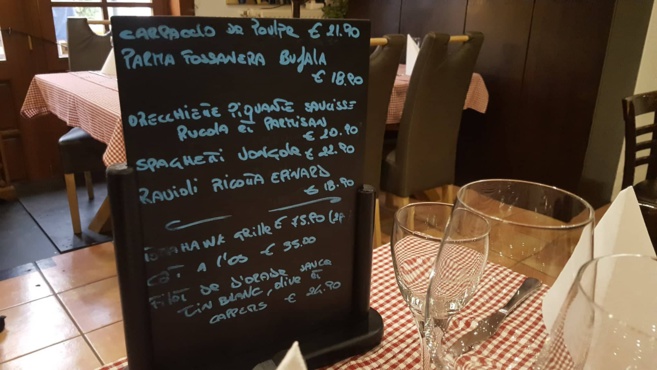 CARPACCIO DE POULPE € 21.90
PARMA FOSSANERA BUFALA
€ 18.90
ORECCHIETTE PIQUANTE SAUCISSE
RUCOLA ET PARMISAN
€ 20.90
SPAGHETTI VONGOLE € 22.90
RAVIOLI RICOTTA EPINARD
€ 18.90
TOMAHAWK GRILLE € 75.90
A L'OS € 35.00
FILET DE DORADE SAUCE
VIN BLANC, OLIVE ET
CAPPERS € 24.90